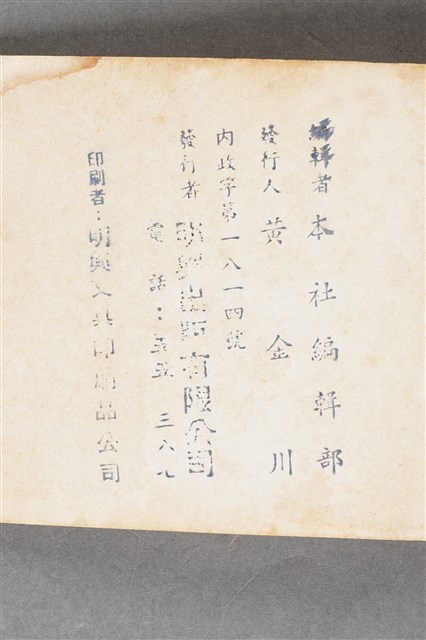 編輯者 本社編輯部
發行人 黃金川
內政字第一八一四號
發行者 出版有限公司
電話：五五三八
印刷者：明興文具印刷品公司